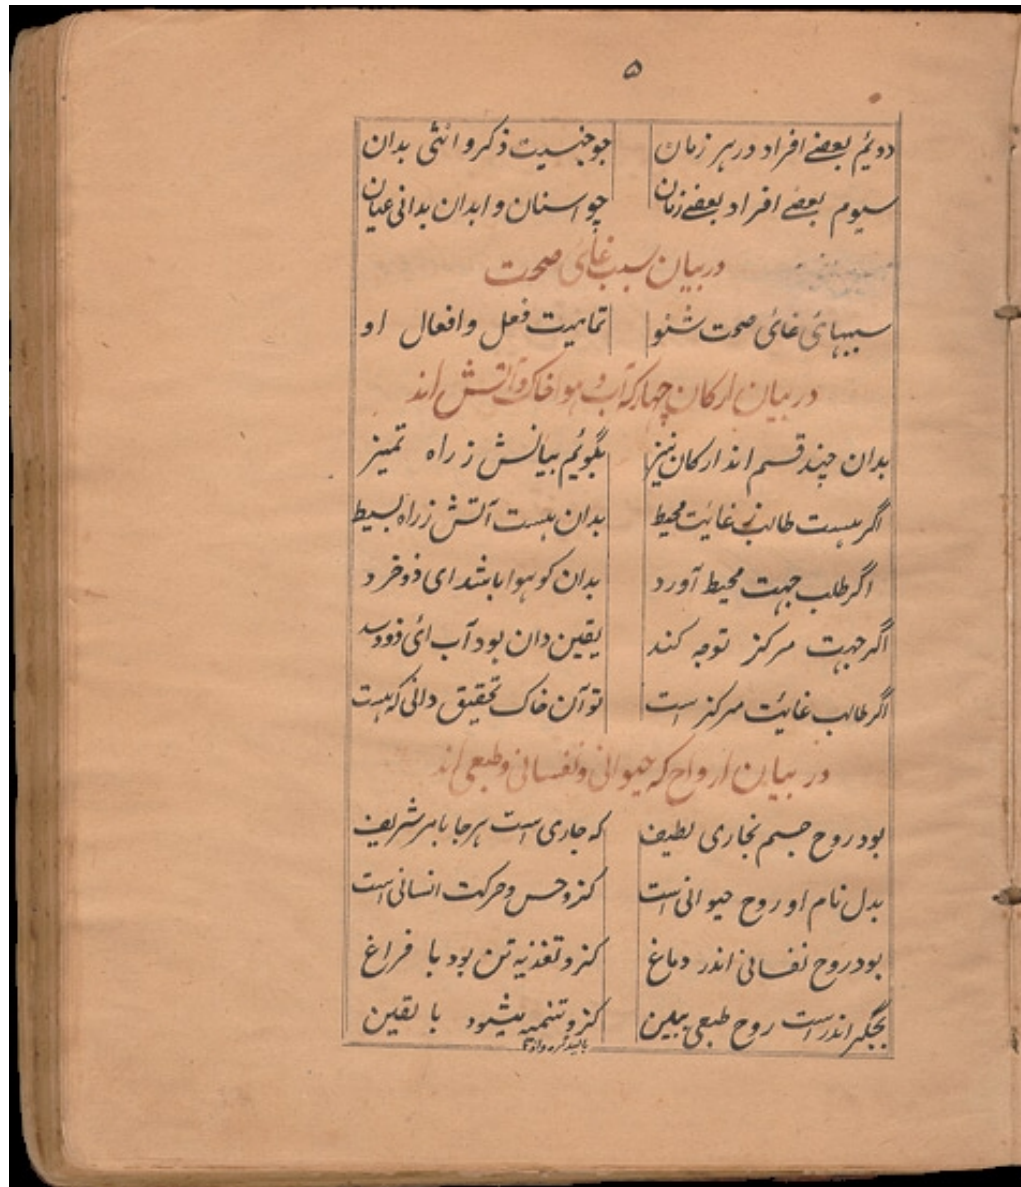 ۵
دوئیم بعضے افراد در ہر زمان چو جنسیت ذکر و انثی بدان
سیوم بعضے افراد بعضے زمان چو اسنان و ابدان بدانی عیان
در بیان سبب غائی صحت
سببہائ غائ صحت شنو تمامیت فعل و افعال او
در بیان ارکان چہار کہ آب و ہوا خاک و آتش اند
بدان چند قسم اند ارکان نیز بگویئم بیانش ز راہ تمیز
اگر ہست طالب ز غائیت محیط بدان ہست آتش ز راہ بسیط
اگر طلب جہت محیط آورد بدان کو ہوا باشد ای ذو خرد
اگر جہت مرکز توجہ کند یقین دان بود آب ائ ذو
اگر طالب غائیت مرکز است تو آن خاک تحقیق دانی کہ ہست
در بیان ارواح کہ حیوانی و نفسانی و طبعی اند
بود روح جسم بخاری لطیف کہ جاری است ہر جا بامر شریف
بدل نام او روح حیوانی است کزو حس و حرکت انسانی است
بود روح نفسانی اندر دماغ کزو تغذیہ تن بود با فراغ
بجگر اندر است روح طبعی ببین کزو تنمیہ میشود با یقین